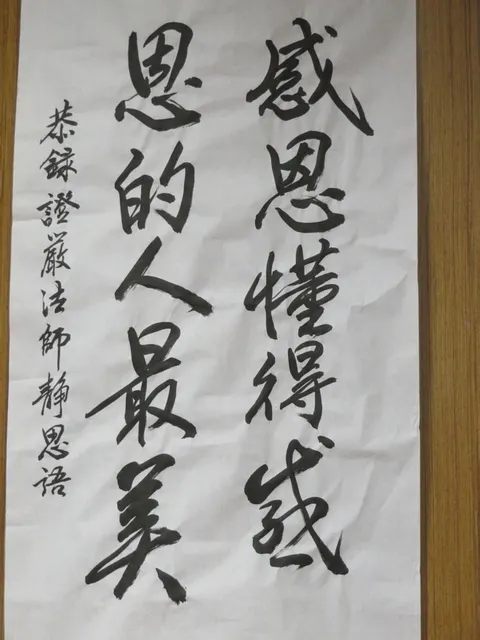 感恩懂得感
恩的人最美
恭錄證嚴法師靜思語